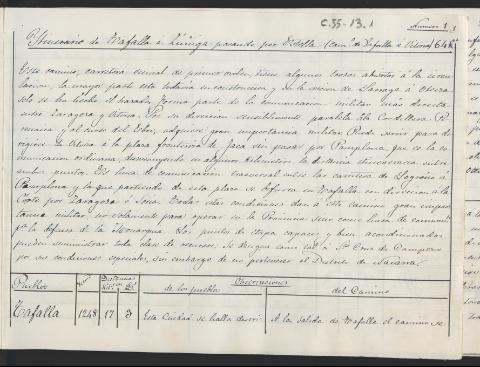 C.55-13.1
Numero 1
Itinerario de Tafalla á Zúñiga pasando por Estella (Camº de Tafalla á Vitoria) 64 K
Este camino, carretera de primer orden, tiene algunos trozos abiertos á la circu-
lacion, la mayor parte esta todavia en construccion y en la seccion de Larraga á Oteiza
solo se ha hecho el trazado, forma parte de la comunicacion militar más directa
entre Zaragoza y Vitoria. Por su direccion sensiblemente paralela á la Cordillera Pi-
renaica y al curso del Ebro, adquiere gran importancia militar. Puede servir para di-
rigirse de Vitoria á la plaza fronteriza de Jaca sin pasar por Pamplona, que es la co-
municacion ordinaria, disminuyendo en algunos kilometros la distancia entre
ambos puntos. Es linea de comunicacion trasversal entre las carreteras de Logroño á
Pamplona y la que partiendo de esta plaza se en Tafalla con direccion á la
Corte por Zaragoza ó Soria. Todas estas condiciones dan á este camino gran impor-
tancia militar no solamente para operar en la Peninsula sino como linea de comunic
pª la defensa de la Monarquia. Los puntos de etapa capaces y bien acondicionados
pueden suministrar toda clase de recursos. Se designa como tal á Sta Cruz de Campezo
por sus condiciones especiales, sin embargo de no pertenecer al Distrito de Navarra.
Pueblos
Distancia
Kilos
Observaciones
de los pueblos
del Camino
Tafalla 1248 17 3 Esta Ciudad se halla A la salida de Tafalla el camino se